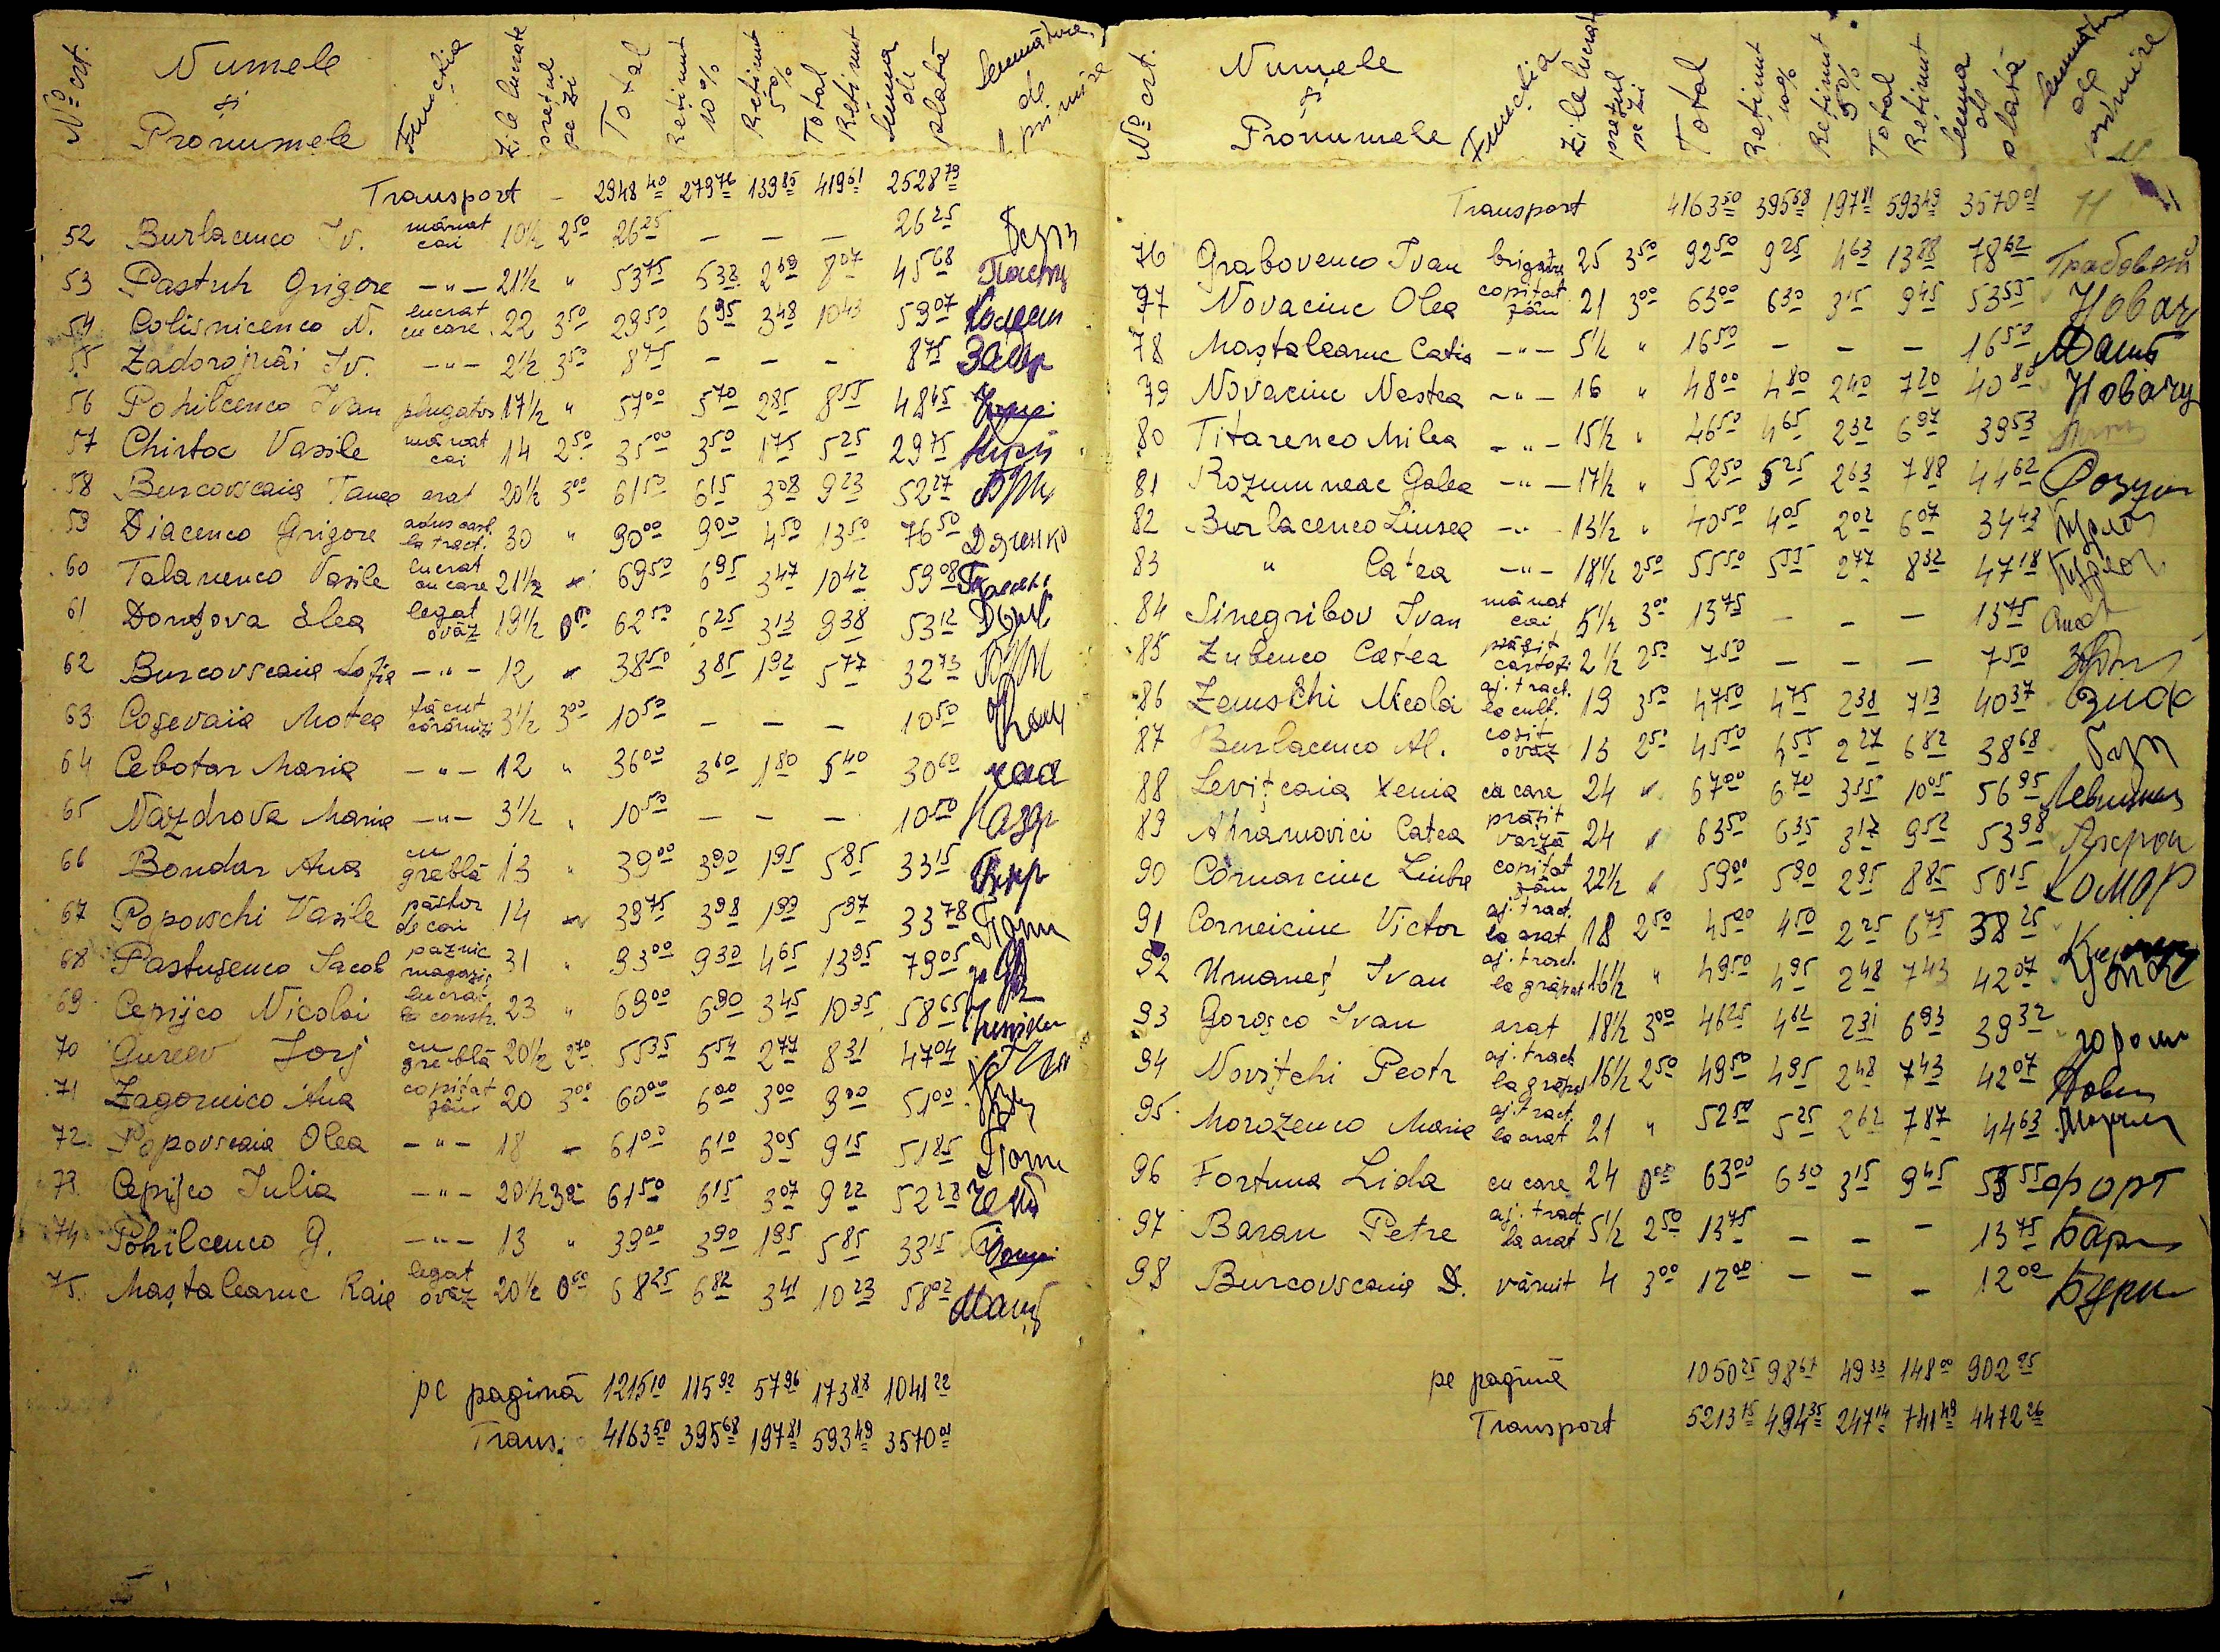 No crt. Numele și Pronumele Funcția Zile lucrate prețul pe zi Total Reținut 10% Reținut 5% Total Reținut Suma de plată Semnătura de primire
Transport - 2948 40 279 76 139 85 419 61 2528 79
52 Burlacenco Iv. mânat cai 10½ 2 50 26 25 - - - 26 25
53 Pastuh Grigore -"- 21½ " 53 75 5 38 2 69 8 07 45 68
54 Colisnicenco N. lucrat cu care 22 3 50 29 50 6 95 3 48 10 43 59 07
55 Zadorojnâi Iv. -"- 2½ 3 50 8 75 - - - 8 75
56 Pohilcenco Ivan plugator 17½ " 57 00 5 70 2 85 8 55 48 45
57 Chirtoc Vasile mânat cai 14 2 50 35 00 3 50 1 75 5 25 29 75
58 Burcovscaia Tanea arat 20½ 3 00 61 50 6 15 3 08 9 23 52 27
59 Diacenco Grigore la tract. 30 " 90 00 9 00 4 50 13 50 76 50
60 Talanenco Vasile lucrat cu care 21½ 69 50 6 95 3 47 10 42 59 08
61 Donțova Elea legat ovăz 19½ 62 50 6 25 3 13 9 38 53 12
62 Burcovscaia Sofia -"- 12 38 50 3 85 1 92 5 77 32 73
63 Coșevaia Motea făcut cărămizi 3½ 3 00 10 50 - - - 10 50
64 Cebotar Maria -"- 12 " 36 00 3 60 1 80 5 40 30 60
65 Nazdrova Maria -"- 3½ " 10 50 - - - 10 50
66 Bondar Ana cu greblă 13 " 39 00 3 90 1 95 5 85 33 15
67 Popovschi Vasile păstor de cai 14 39 75 3 98 1 99 5 97 33 78
68 Pastușenco Iacob paznic magazie 31 " 93 00 9 30 4 65 13 95 79 05
69 Cepijco Nicolai lucrat la constr. 23 " 69 00 6 90 3 45 10 35 58 65
70 Gureev Jorj cu greblă 20½ 2 70 55 35 5 54 2 77 8 31 47 04
71 Zagornico Ana copițat fân 20 3 00 60 00 6 00 3 00 9 00 51 00
72 Popovscaia Olea -"- 18 - 61 00 6 10 3 05 9 15 51 85
73 Cepijco Iulia -"- 20½ 3 00 61 50 6 15 3 07 9 22 52 28
74 Pohilcenco G. -"- 13 " 39 00 3 90 1 95 5 85 33 15
75 Maștaleariuc Raia legat ovăz 20½ 68 25 6 82 3 41 10 23 58 02
pe pagină 1215 10 115 92 57 96 173 88 1041 22
Trans. 4163 50 395 68 197 81 593 49 3570 01
No crt. Numele și Pronumele Funcția Zile lucrate prețul pe zi Total Reținut 10% Reținut 5% Total Reținut Suma de plată Semnătura de primire
Transport 4163 50 395 68 197 81 593 49 3570 01
76 Grabovenco Ivan 25 3 50 92 50 9 25 4 63 13 88 78 62
77 Novaciuc Olea copițat fân 21 3 00 63 00 6 30 3 15 9 45 53 55 Новач
78 Maștaleariuc Catia -"- 5½ " 16 50 - - - 16 50
79 Novaciuc Nastea -"- 16 " 48 00 4 80 2 40 7 20 40 80 Новачу
80 Titarenco Milea -"- 15½ " 46 50 4 65 2 32 6 97 39 53
81 Rozumneac Galea -"- 17½ " 52 50 5 25 2 63 7 88 44 62
82 Burlacenco Liusea -"- 13½ " 40 50 4 05 2 02 6 07 34 43
83 " Catea -"- 18½ 2 50 55 50 5 55 2 77 8 32 47 18
84 Sinegribov Ivan mânat cai 5½ 3 00 13 75 - - - 13 75
85 Zubenco Catea prășit cartofi 2½ 2 50 7 50 - - - 7 50
86 Zemschi Nicolai aj. tract. la cult. 19 3 50 47 50 4 75 2 38 7 13 40 37
87 Burlacenco Al. cosit ovăz 13 2 50 45 50 4 55 2 27 6 82 38 68
88 Levițcaia Xenia cu care 24 67 00 6 70 3 35 10 05 56 95
89 Ahramovici Catea prășit varză 24 63 50 6 35 3 17 9 52 53 98
90 Comarciuc Liuba copițat fân 22½ 59 00 5 90 2 95 8 85 50 15 Комар
91 Corneiciuc Victor aj. tract. la arat 18 2 50 45 00 4 50 2 25 6 75 38 25
92 Umaneț Ivan aj. tract. la grăpat 16½ " 49 50 4 95 2 48 7 43 42 07
93 Goroșco Ivan arat 18½ 3 00 46 25 4 62 2 31 6 93 39 32
94 Novițchi Peotr aj. tract. la grăpat 16½ 2 50 49 50 4 95 2 48 7 43 42 07
95 Morozenco Maria aj. tract. la arat 21 " 52 50 5 25 2 62 7 87 44 63
96 Fortuna Lida cu care 24 63 00 6 30 3 15 9 45 53 55 Форт
97 Baran Petre aj. tract. la arat 5½ 2 50 13 75 - - - 13 75
98 Burcovscaia D. văruit 4 3 00 12 00 - - - 12 00
pe pagină 1050 25 98 67 49 33 148 00 902 25
Transport 5213 75 494 35 247 14 741 49 4472 26